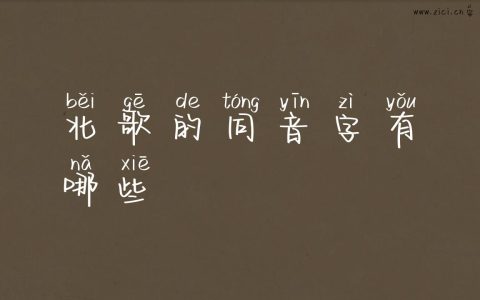 www.zici.cn
běi gē de tóng yīn zì yǒu
北歌的同音字有
nǎ xiē
哪些